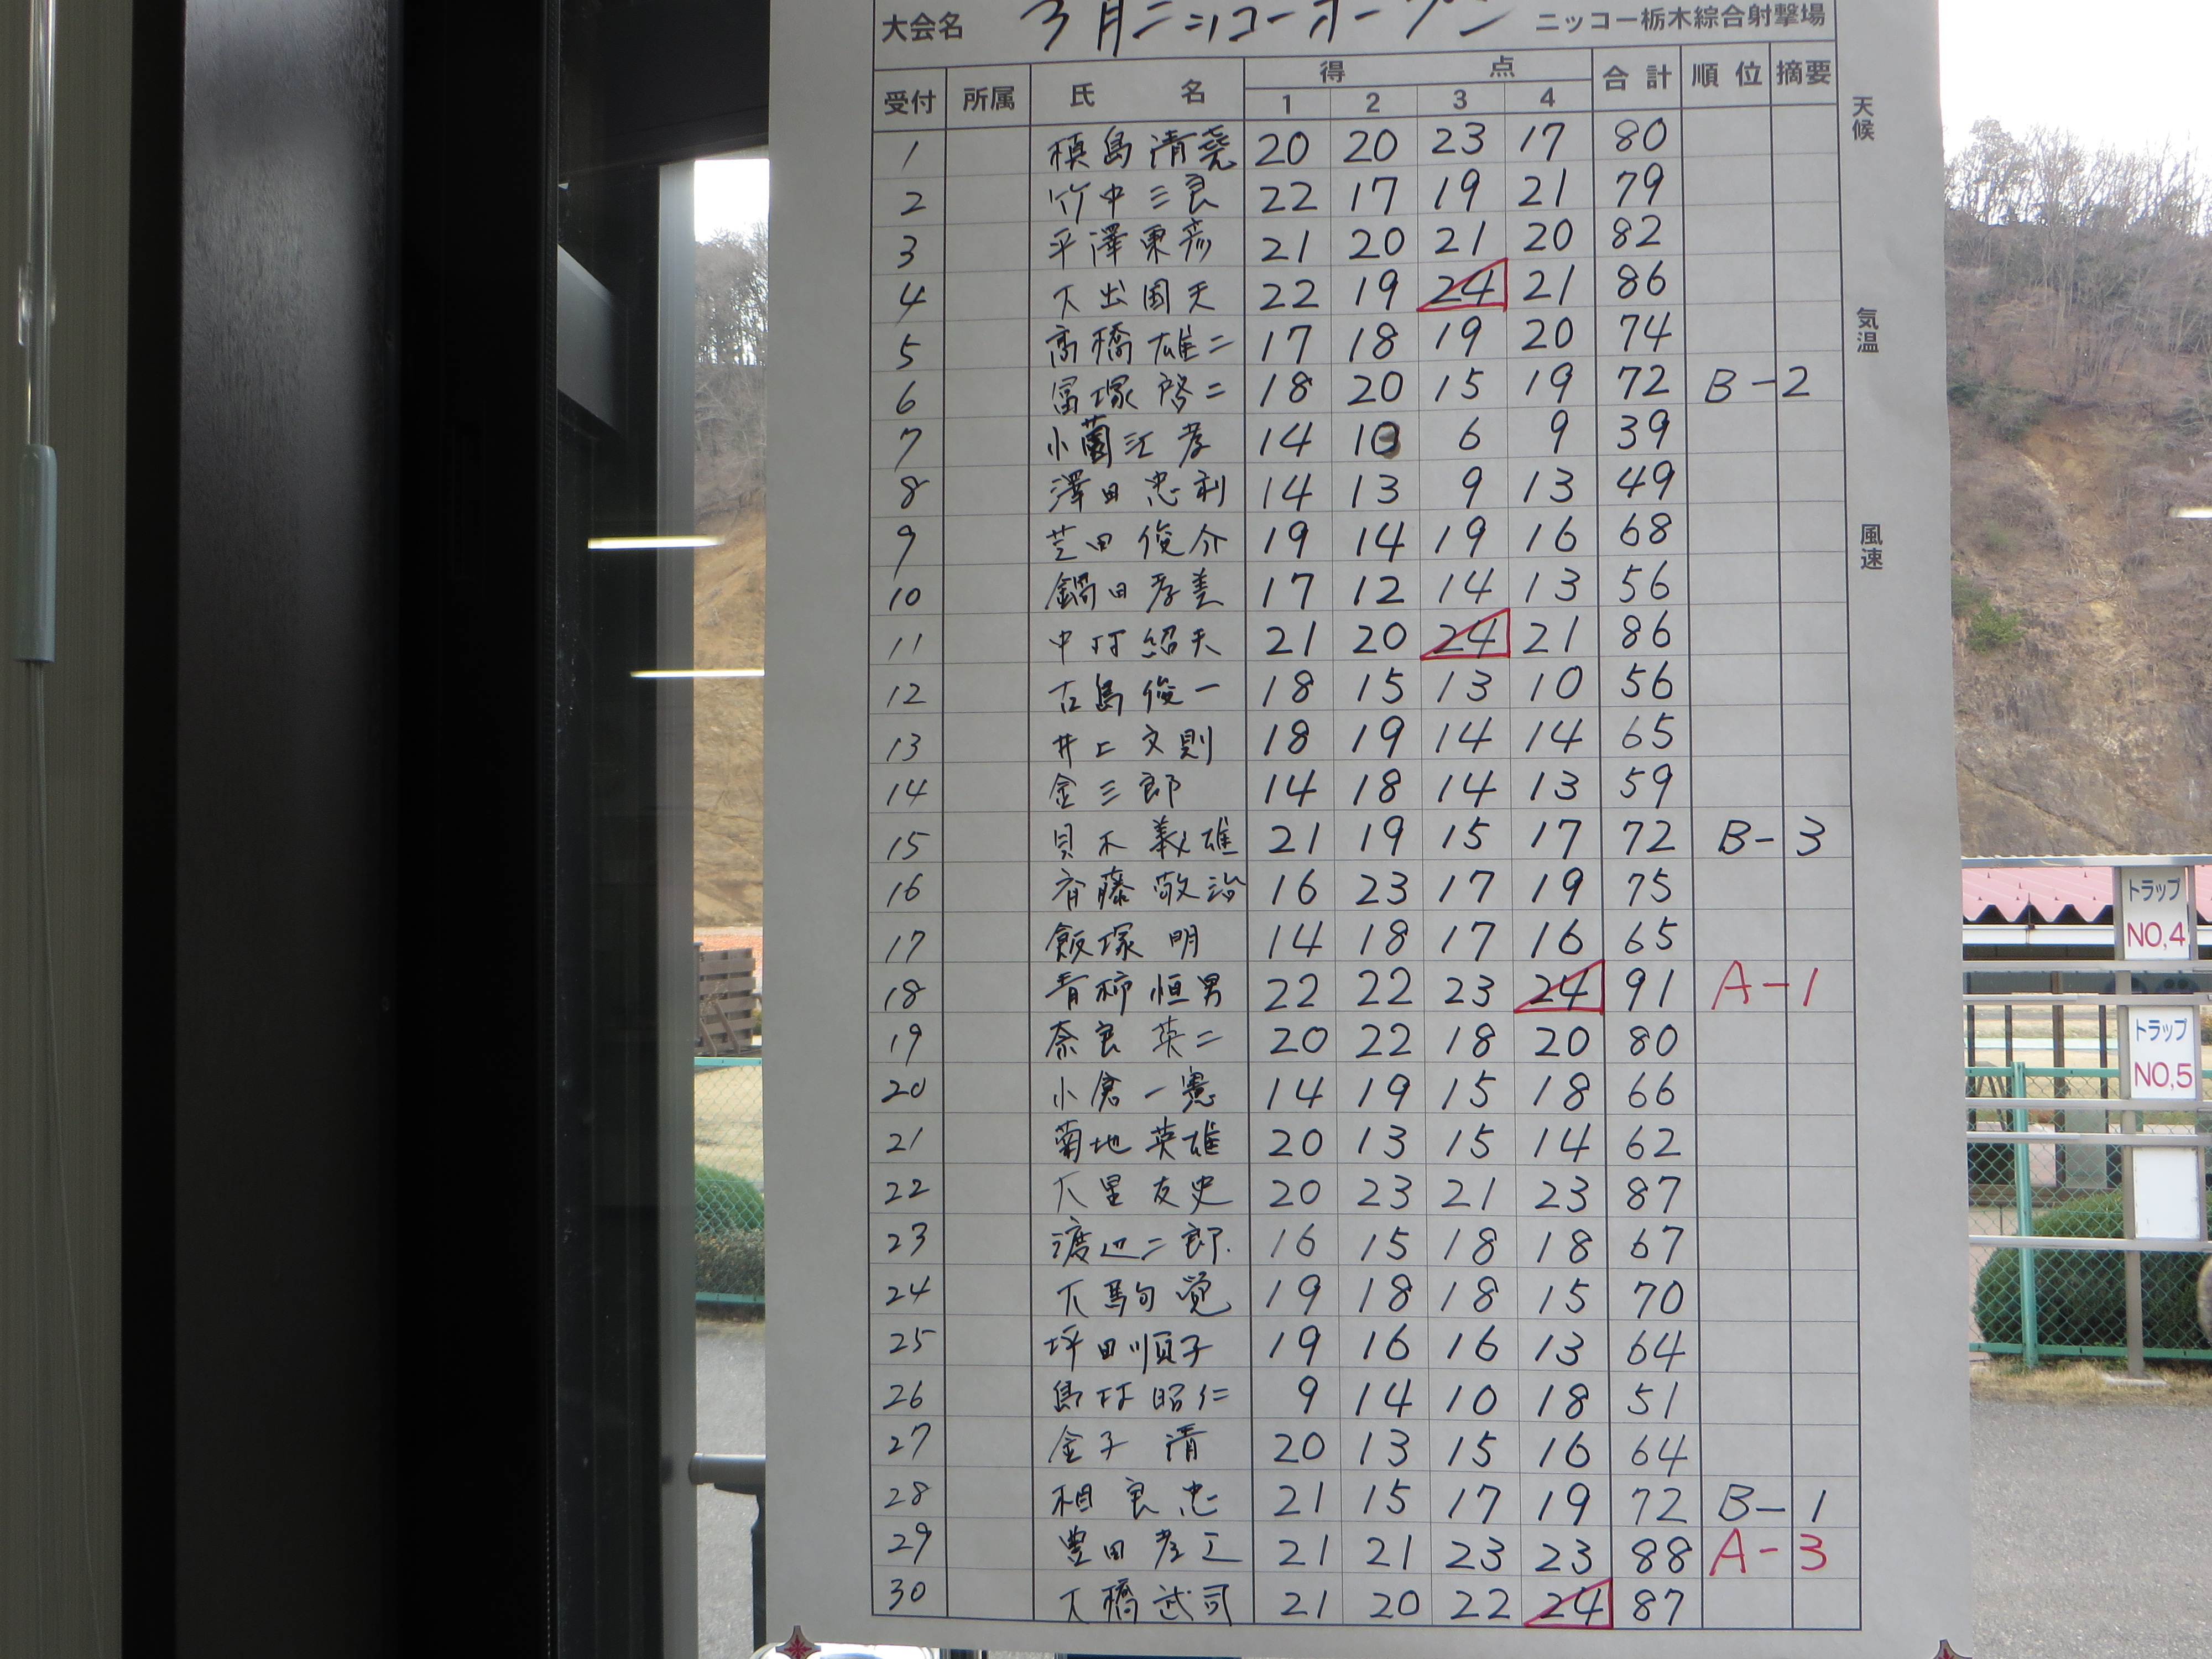 大会名 3月ニッコーオープン ニッコー栃木綜合射撃場
受付 所属 氏名 得点 合計 順位 摘要
1 2 3 4
1 槙島清尭 20 20 23 17 80
2 竹中三良 22 17 19 21 79
3 平澤東彦 21 20 21 20 82
4 大出国夫 22 19 24 21 86
5 高橋雄二 17 18 19 20 74
6 冨塚啓二 18 20 15 19 72 B-2
7 小薗江孝 14 10 6 9 39
8 澤田忠利 14 13 9 13 49
9 芝田俊介 19 14 19 16 68
10 鍋田孝美 17 12 14 13 56
11 中村紹夫 21 20 24 21 86
12 古島俊一 18 15 13 10 56
13 井上文則 18 19 14 14 65
14 金三郎 14 18 14 13 59
15 貝木義雄 21 19 15 17 72 B-3
16 斉藤敬治 16 23 17 19 75
17 飯塚明 14 18 17 16 65
18 青柳恒男 22 22 23 24 91 A-1
19 奈良英二 20 22 18 20 80
20 小倉一憲 14 19 15 18 66
21 菊地英雄 20 13 15 14 62
22 大里友史 20 23 21 23 87
23 渡辺二郎 16 15 18 18 67
24 大駒覚 19 18 18 15 70
25 坪田順子 19 16 16 13 64
26 島村昭仁 9 14 10 18 51
27 金子清 20 13 15 16 64
28 相良忠 21 15 17 19 72 B-1
29 豊田孝工 21 21 23 23 88 A-3
30 大橋武司 21 20 22 24 87
天候
気温
風速
トラップ
NO,4
トラップ
NO,5